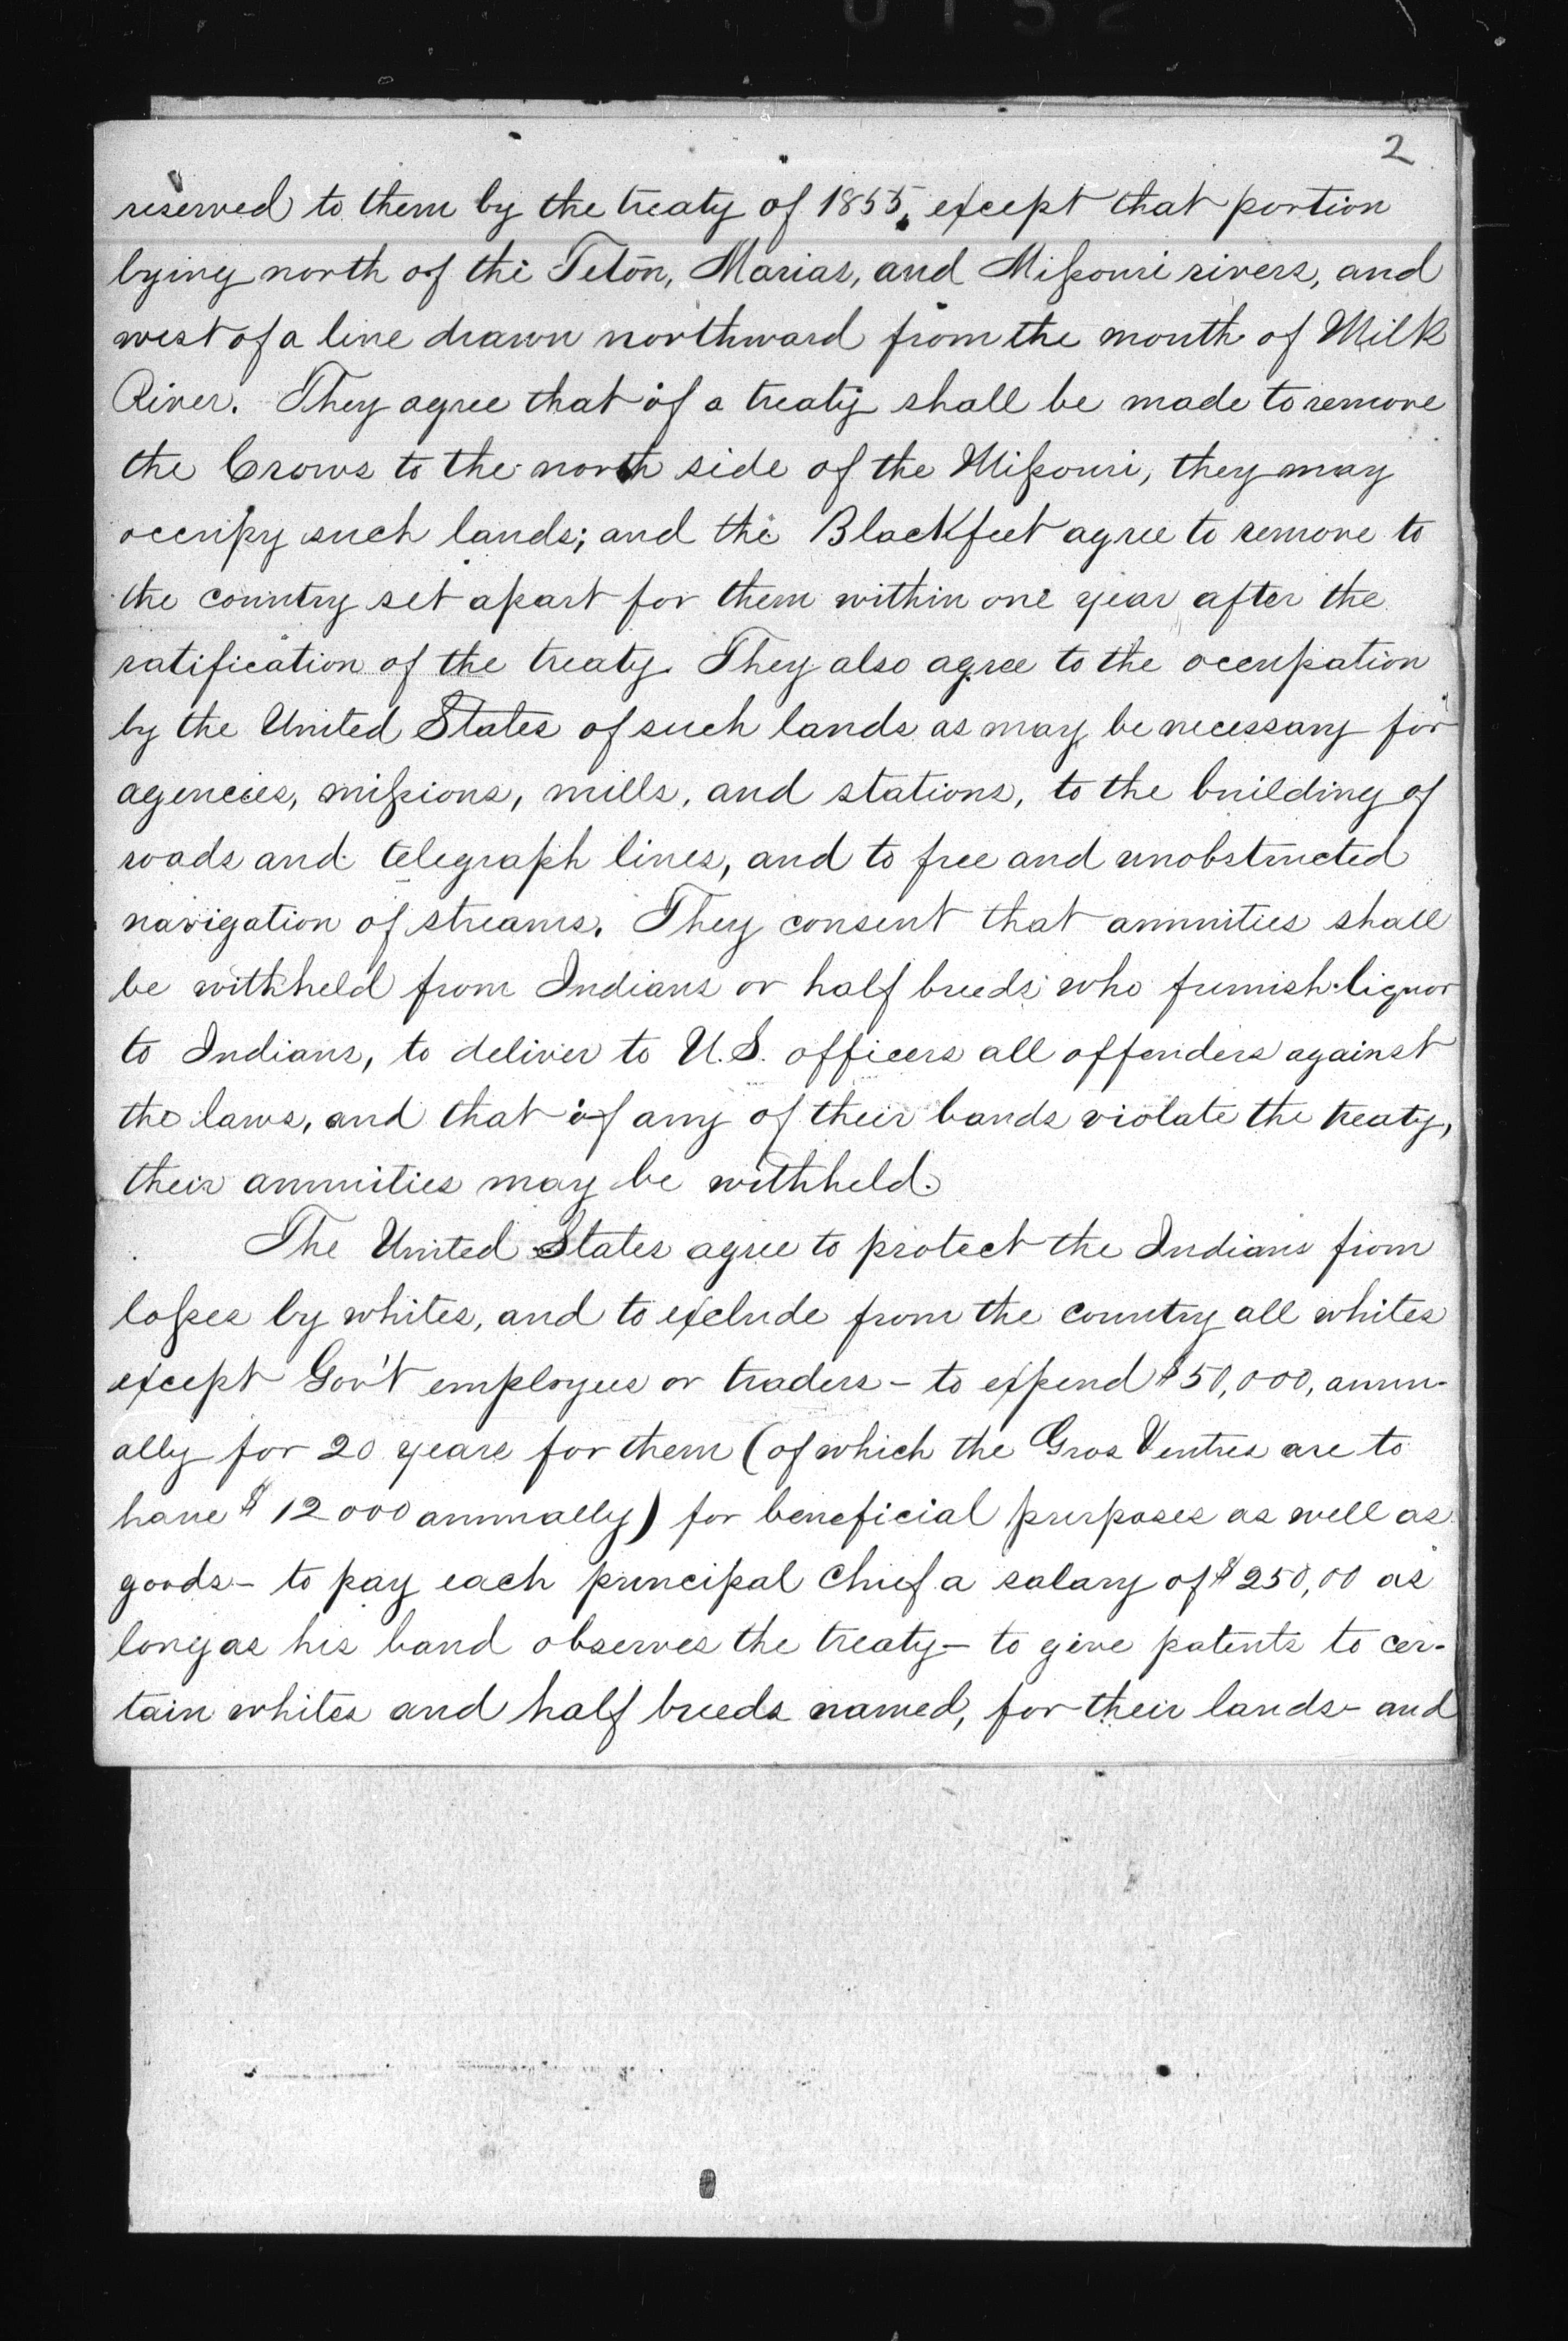 0152
2
reserved to them by the treaty of 1855, except that portion
lying north of the Teton, Marias, and Missouri rivers, and
west of a line drawn northward from the mouth of Milk
River. They agree that if a treaty shall be made to remove
the Crows to the north side of the Missouri, they may
occupy such lands; and the Blackfeet agree to remove to
the country set apart for them within one year after the
ratification of the treaty. They also agree to the occupation
by the United States of such lands as may be necessary for
agencies, missions, mills, and stations, to the building of
roads and telegraph lines, and to free and unobstructed
navigation of streams. They consent that annuities shall
be withheld from Indians or half breeds who furnish liquor
to Indians, to deliver to U.S. officers all offenders against
the laws, and that if any of their bands violate the treaty,
their annuities may be withheld.
The United States agree to protect the Indians from
losses by whites, and to exclude from the country all whites
except Gov't employees or traders - to expend $50,000, annu-
ally for 20 years for them (of which the Gros Ventres are to
have $12000 annually) for beneficial purposes as well as
goods - to pay each principal chief a salary of $250,00 as
long as his band observes the treaty - to give patents to cer-
tain whites and half breeds named, for their lands - and